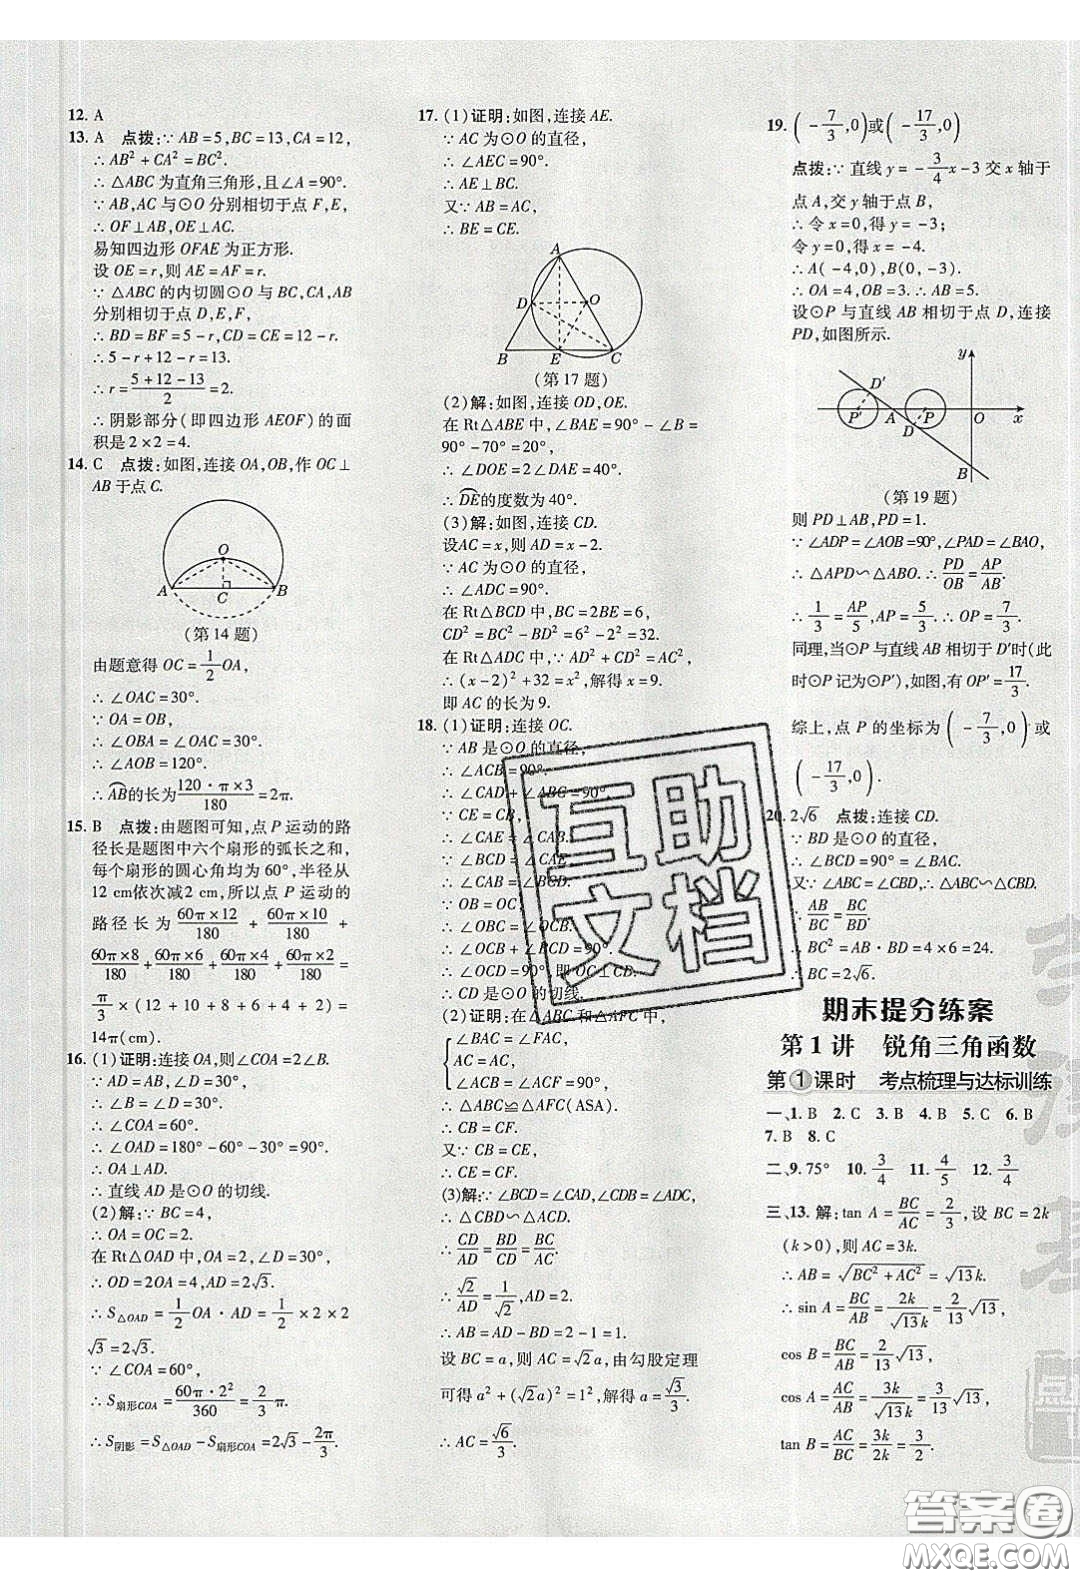 12. A
13. A 点拨:∵AB=5,BC=13,CA=12,
∴AB²+CA²=BC².
∴△ABC 为直角三角形,且∠A=90°.
∵AB,AC与⊙O 分别相切于点 F,E,
∴OF⊥AB,OE⊥AC.
易知四边形 OFAE 为正方形.
设 OE=r,则 AE=AF=r.
∵△ABC 的内切圆⊙O 与 BC,CA,AB
分别相切于点 D,E,F,
∴BD=BF=5-r,CD=CE=12-r.
∴5-r+12-r=13.
∴r=(5+12-13)/2=2.
∴阴影部分(即四边形 AEOF)的面
积是 2×2=4.
14. C 点拨:如图,连接 OA,OB,作 OC⊥
AB 于点 C.
O
A C B
(第 14 题)
由题意得 OC=1/2 OA,
∴∠OAC=30°.
∵OA=OB,
∴∠OBA=∠OAC=30°.
∴∠AOB=120°.
∴AB的长为(120·π×3)/180=2π.
15. B 点拨:由题图可知,点 P 运动的路
径长是题图中六个扇形的弧长之和,
每个扇形的圆心角均为 60°,半径从
12 cm依次减2 cm,所以点 P 运动的
路径长为 60π×12/180 + 60π×10/180 +
60π×8/180 + 60π×6/180 + 60π×4/180 + 60π×2/180 =
π/3×(12+10+8+6+4+2)=
14π(cm).
16. (1)证明:连接 OA,则∠COA=2∠B.
∵AD=AB,
∴∠B=∠D=30°.
∴∠COA=60°.
∴∠OAD=180°-60°-30°=90°.
∴OA⊥AD.
∴直线 AD 是⊙O 的切线.
(2)解:∵BC=4,
∴OA=OC=2.
在 Rt△OAD 中,OA=2,∠D=30°,
∴OD=2OA=4,AD=2√3.
∴S△OAD=1/2 OA·AD=1/2×2×2
√3=2√3.
∵∠COA=60°,
∴S扇形COA=60π·2²/360=2/3π.
∴S阴影=S△OAD-S扇形COA=2√3-2π/3.
17. (1)证明:如图,连接 AE.
∵AC 为⊙O 的直径,
∴∠AEC=90°.
∴AE⊥BC.
又∵AB=AC,
∴BE=CE.
A
D O
B E C
(第 17 题)
(2)解:如图,连接 OD,OE.
在 Rt△ABE 中,∠BAE=90°-∠B=
90°-70°=20°.
∴∠DOE=2∠DAE=40°.
∴DE的度数为 40°.
(3)解:如图,连接 CD.
设AC=x,则 AD=x-2.
∵AC 为⊙O 的直径,
∴∠ADC=90°.
在 Rt△BCD 中,BC=2BE=6,
CD²=BC²-BD²=6²-2²=32.
在 Rt△ADC 中,∵AD²+CD²=AC²,
∴(x-2)²+32=x²,解得 x=9.
即 AC 的长为 9.
18. (1)证明:连接 OC.
∵AB 是⊙O 的直径,
∴∠ACB=90°.
∴∠CAD+∠ABC=90°.
∵CE=CB,
∴∠CAE=∠CAB.
∵∠BCD=∠CAE,
∴∠CAB=∠BCD.
∵OB=OC,
∴∠OBC=∠OCB.
∴∠OCB+∠BCD=90°.
∴∠OCD=90°,即 OC⊥CD.
∴CD 是⊙O 的切线.
(2)证明:在△ABC 和△AFC 中,
∠BAC=∠FAC,
AC=AC,
∠ACB=∠ACF,
∴△ABC≌△AFC(ASA).
∴CB=CF.
又∵CB=CE,
∴CE=CF.
(3)解:∵∠BCD=∠CAD,∠ADC=∠ADC,
∴△CBD∽△ACD.
∴CD/AD=BD/CD=BC/AC.
∴√2/AD=1/√2,AD=2.
∴AB=AD-BD=2-1=1.
设 BC=a,则 AC=√2a,由勾股定理
可得 a²+(√2a)²=1²,解得 a=√3/3.
∴AC=√6/3.
19. (-7/3,0)或(-17/3,0)
点拨:∵直线 y=-3/4x-3 交 x 轴于
点 A,交 y 轴于点 B,
∴令 x=0,得 y=-3;
令 y=0,得 x=-4.
∴A(-4,0),B(0,-3).
∴OA=4,OB=3.∴AB=5.
设⊙P 与直线 AB 相切于点 D,连接
PD,如图所示.
y
D′
P′ A P O x
D
B
(第 19 题)
则 PD⊥AB,PD=1.
∵∠ADP=∠AOB=90°,∠PAD=∠BAO,
∴△APD∽△ABO.∴PD/OB=AP/AB.
∴1/3=AP/5,AP=5/3.∴OP=7/3.
同理,当⊙P 与直线 AB 相切于 D′时(此
时⊙P 记为⊙P′),如图,有 OP′=17/3.
综上,点 P 的坐标为(-7/3,0)或
(-17/3,0).
20. 2√6 点拨:连接 CD.
∵BD 是⊙O 的直径,
∴∠BCD=90°=∠BAC.
又∵∠ABC=∠CBD,∴△ABC∽△CBD.
∴AB/BC=BC/BD.
∴BC²=AB·BD=4×6=24.
∴BC=2√6.
期末提分练案
第 1 讲 锐角三角函数
第①课时 考点梳理与达标训练
一、1. B 2. C 3. B 4. B 5. C 6. B
7. B 8. C
二、9. 75° 10. 3/4 11. 4/5 12. 3/4
三、13. 解:tan A=BC/AC=2/3,设 BC=2k
(k>0),则 AC=3k.
∴AB=√(BC²+AC²)=√13k.
∴sin A=BC/AB=2k/√13k=2/13√13,
cos B=BC/AB=2/13√13,
cos A=AC/AB=3k/√13k=3/13√13,
tan B=AC/BC=3k/2k=3/2.
互助
文档
答案卷
MXQE.COM